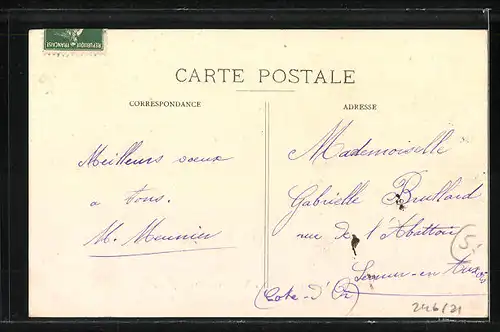 REPUBLIQUE FRANÇAISE
CARTE POSTALE
CORRESPONDANCE
ADRESSE
Meilleurs voeux
a tous.
M. Meunier
Mademoiselle
Gabrielle
rue de l'Abattoir
Semur-en Auxois
(Cote-d'Or)
5
246/21